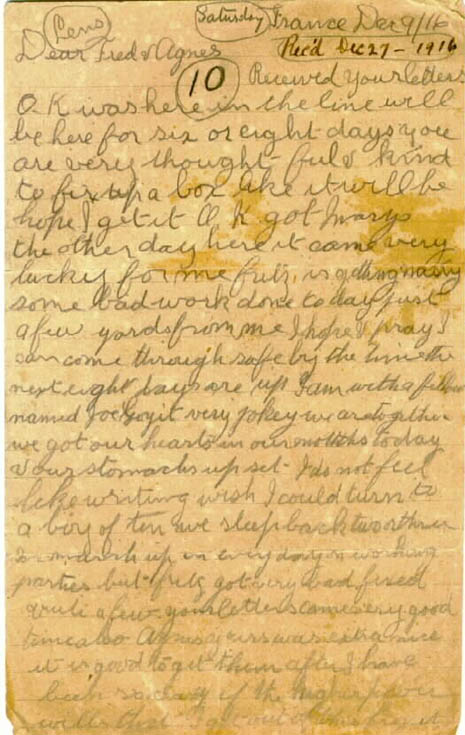 Pens Saturday France Dec 9/16
Dear Fred & Agnes Rec'd Dec 27 - 1916
10 Received your letters
O K was here in the line will
be here for six or eight days you
are very thoughtful & kind
to fix up a box like it will be
hope I get it O K got Marys
the other day here it came very
lucky for me fritz is getting nasty
some bad work done today just
a few yards from me I hope & pray I
can come through safe by the time the
next eight days are up I am with a fellow
named Joe very jokey we are together
we got our hearts in our mouths today
& our stomachs up set I do not feel
like writing wish I could turn to
a boy of ten we sleep back two or three
& march up in every day on working
parties but fritz got very bad fixed
quite a few your letters come very good
time also Agness yours was extra nice
it is good to get them after I have
been so if the higher power
wills that I get out of this